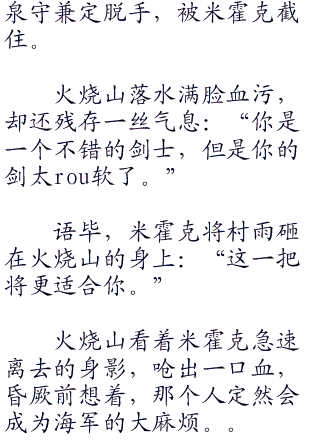 泉守兼定脱手，被米霍克截
住。
火烧山落水满脸血污，
却还残存一丝气息：“你是
一个不错的剑士，但是你的
剑太rou软了。”
语毕，米霍克将村雨砸
在火烧山的身上：“这一把
将更适合你。”
火烧山看着米霍克急速
离去的身影，呛出一口血，
昏厥前想着，那个人定然会
成为海军的大麻烦。。